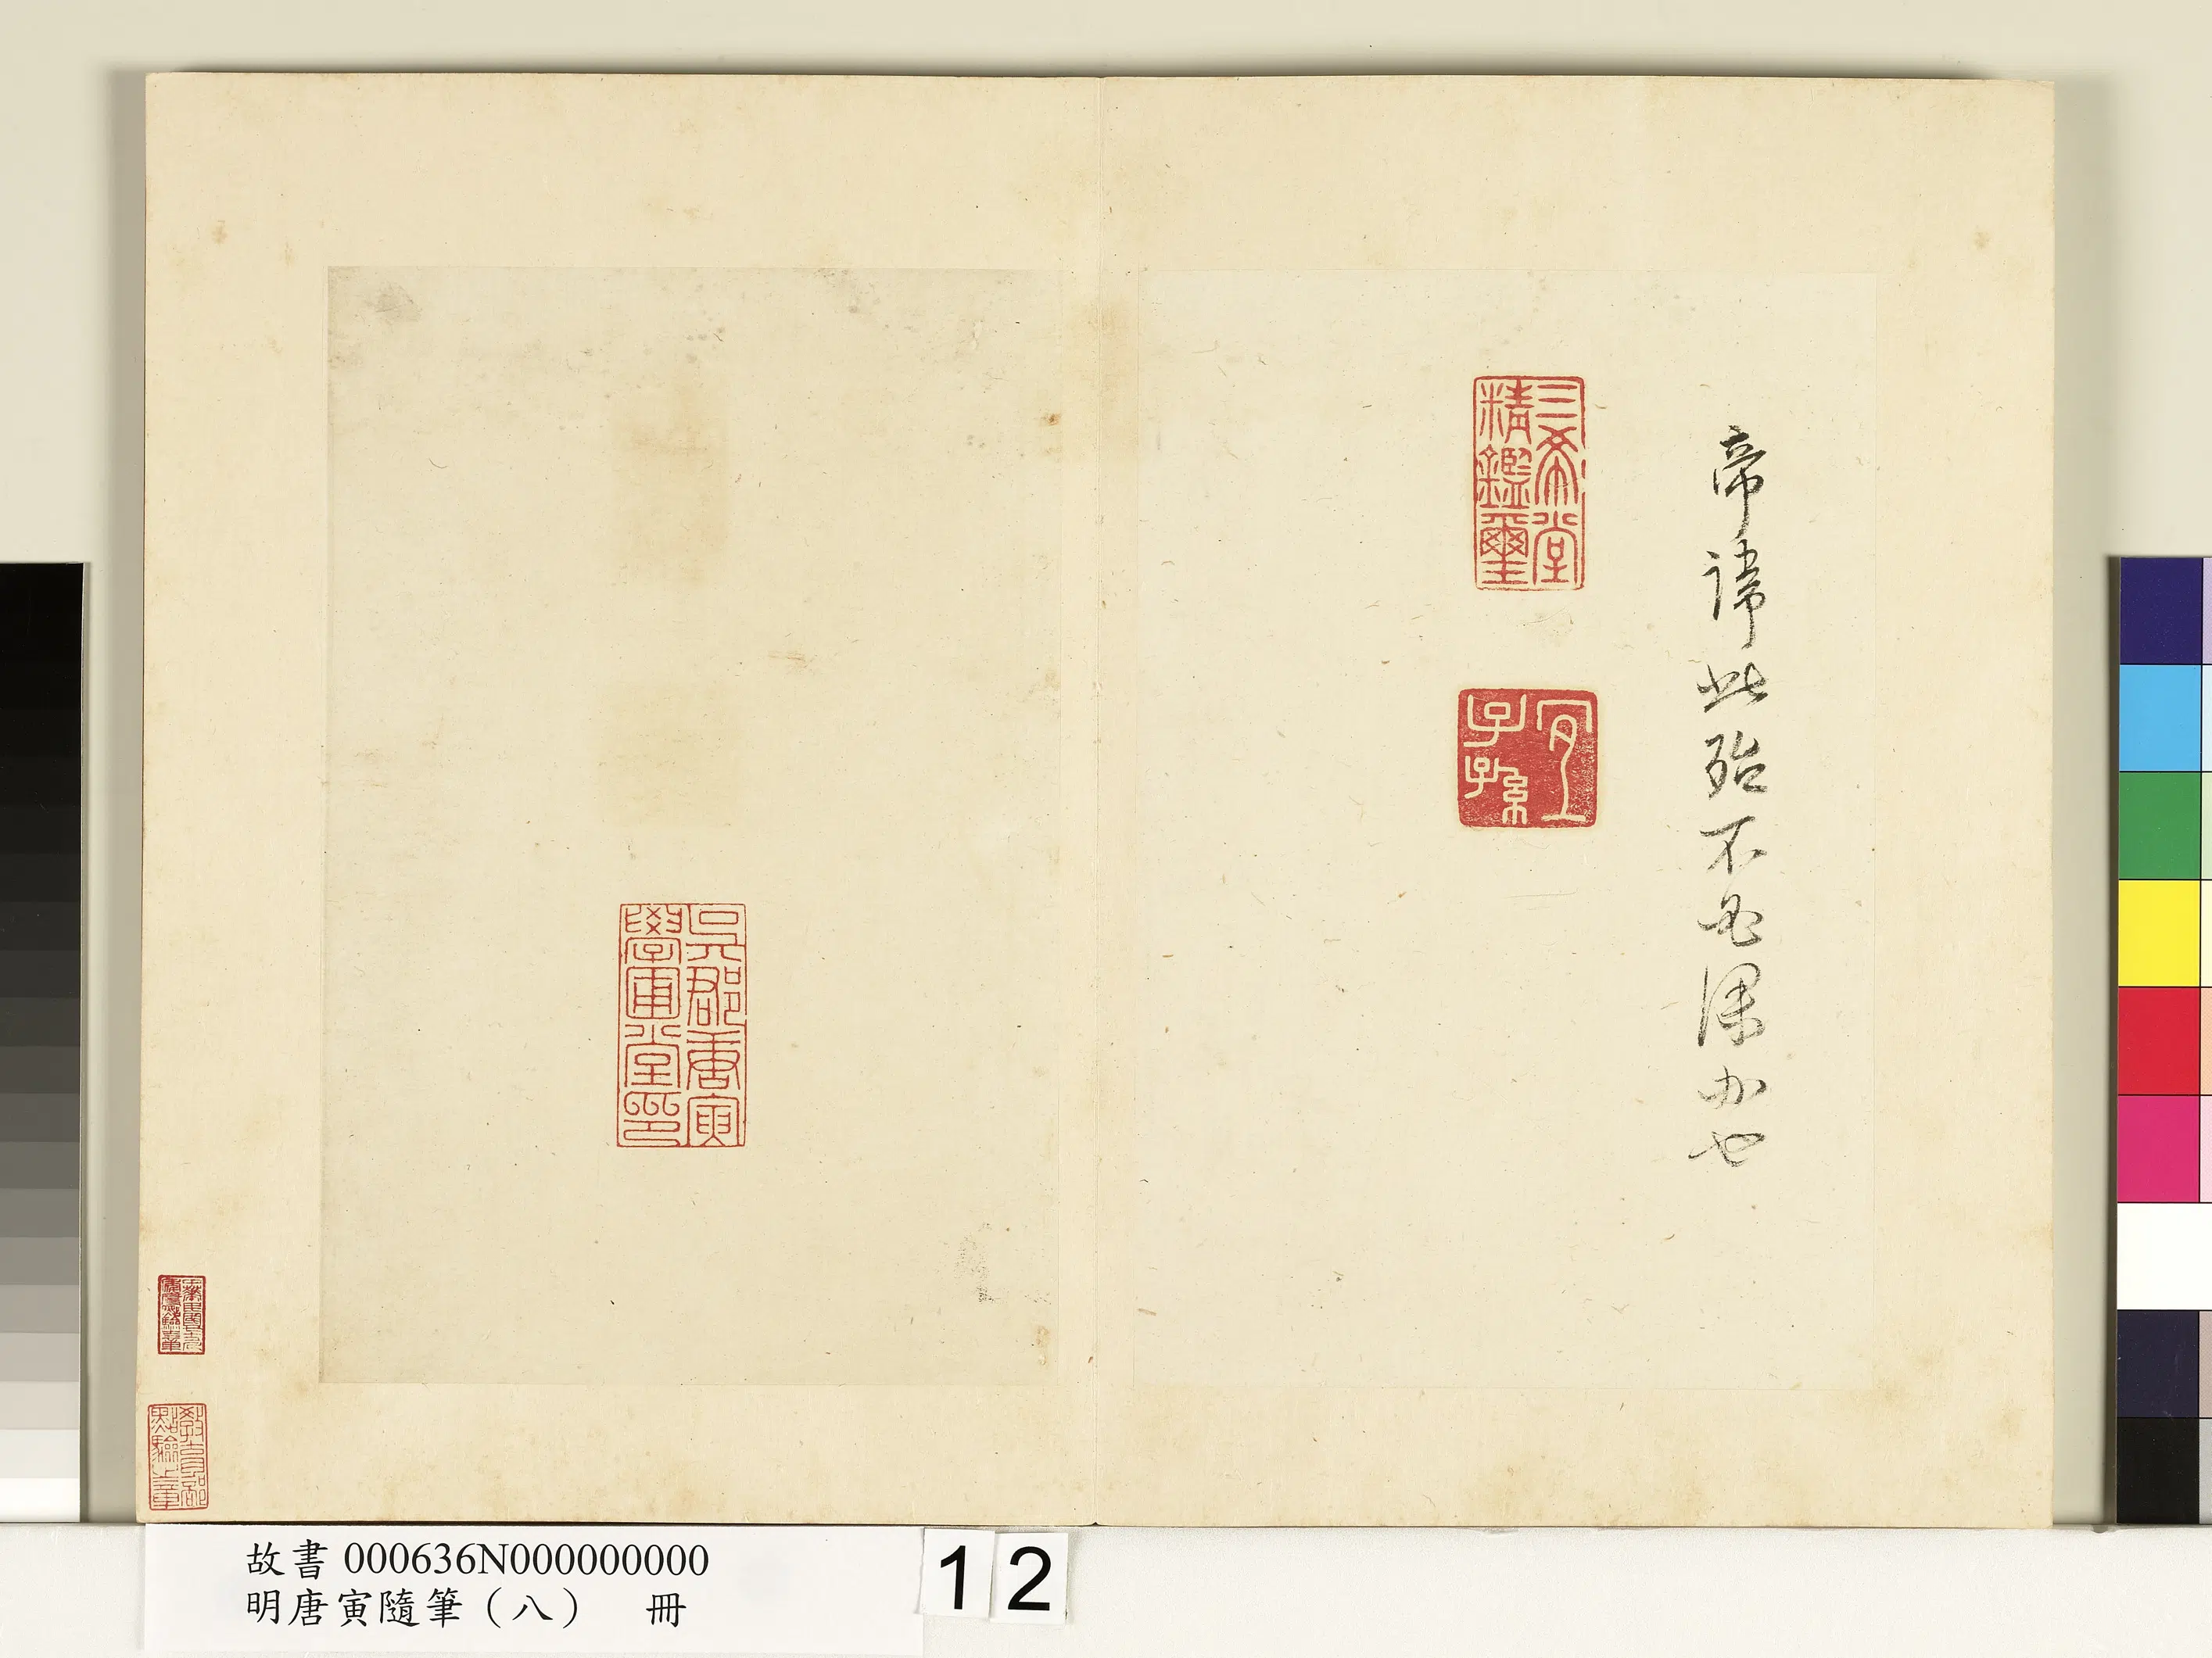 帝諱此殆不必深办也
三希堂
精鑑璽
宜
子孫
吳郡唐寅
學圃堂印
教育部
點驗之章
故書 000636N000000000
明唐寅隨筆(八) 冊
12